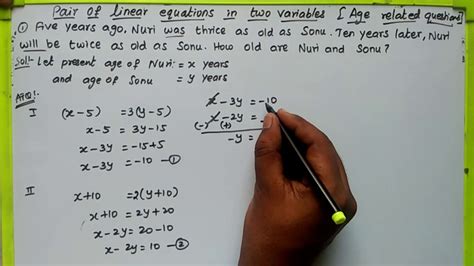 Pair of linear equations in two variables [Age related questions]
① Five years ago, Nuri was thrice as old as Sonu. Ten years later, Nuri
will be twice as old as Sonu. How old are Nuri and Sonu?
Sol:- Let present age of Nuri = x years
and age of Sonu = y years
ATQ:-
I (x-5) = 3(y-5)
x-5 = 3y-15
x-3y = -15+5
x-3y = -10 -①
II x+10 = 2(y+10)
x+10 = 2y+20
x-2y = 20-10
x-2y = 10 -②
x-3y = -10
x-2y =
(-) (+)
-y =